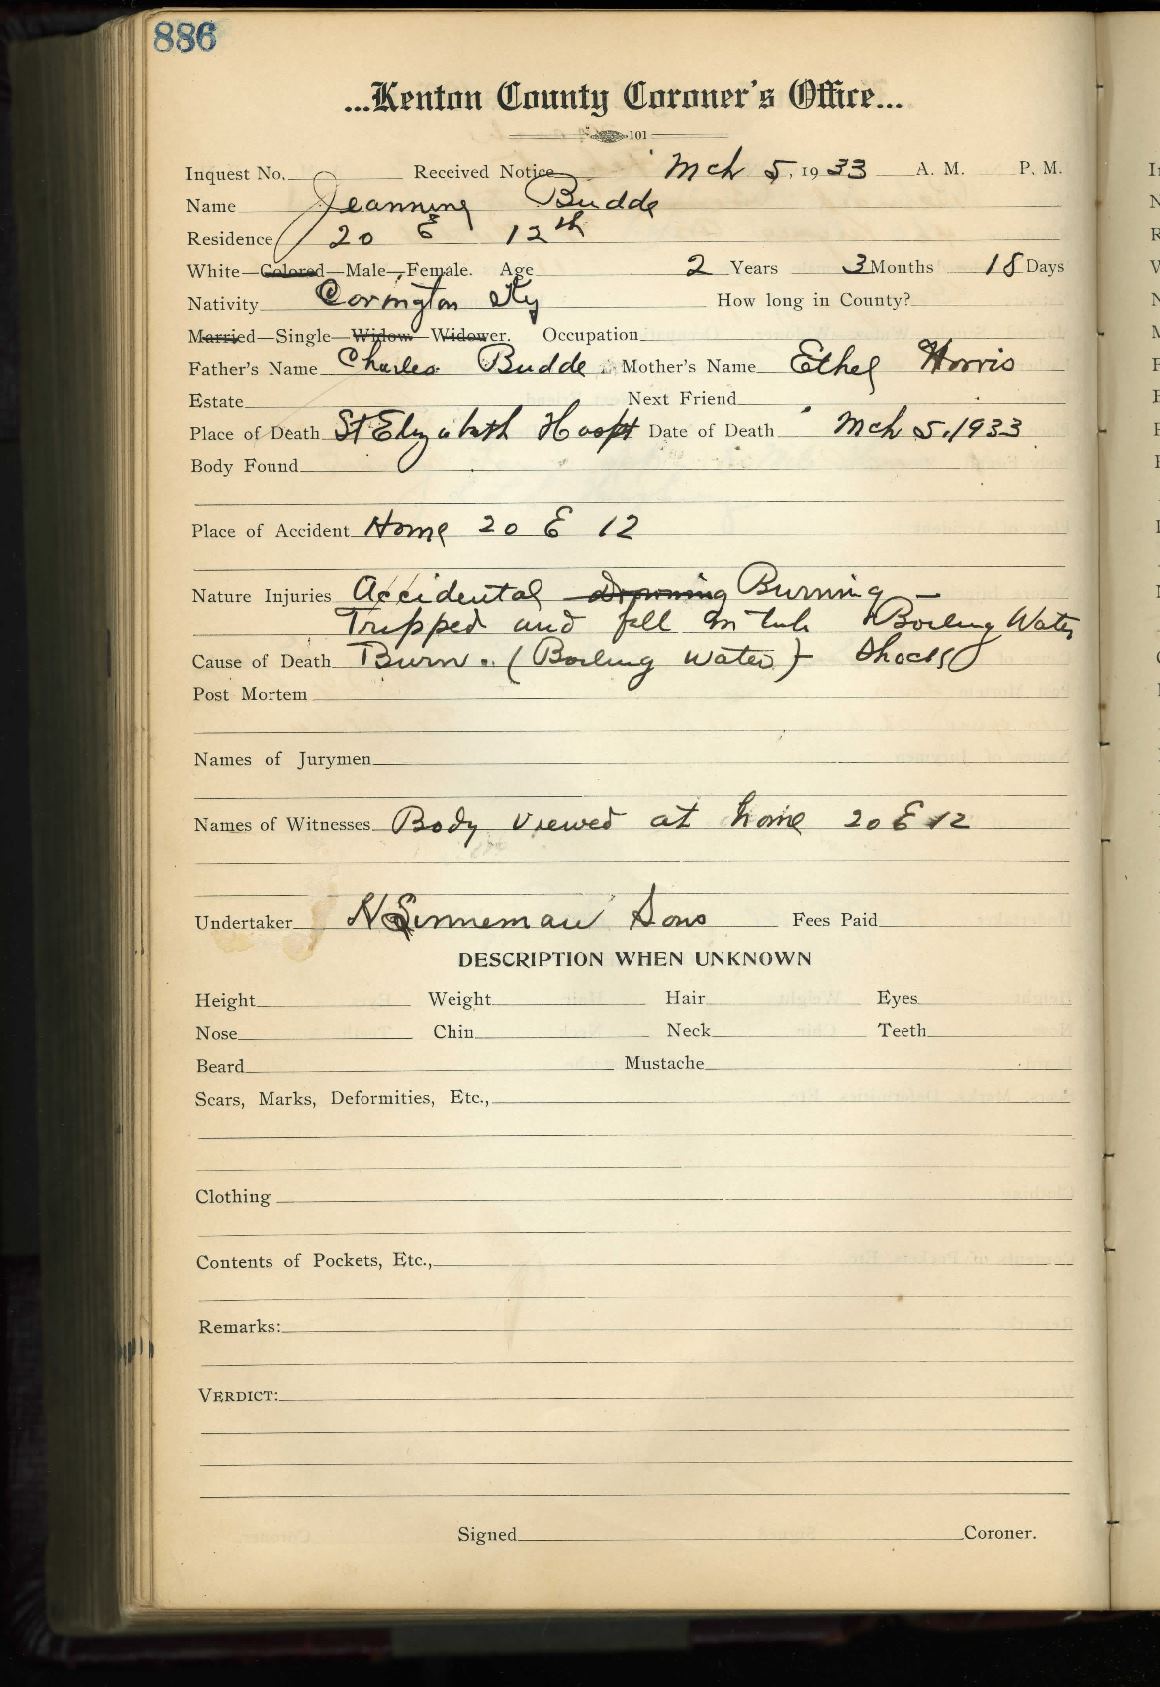 886
...Kenton County Coroner's Office...
101
Inquest No. Received Notice Mch 5, 1933 A. M. P. M.
Name Jeannine Budde
Residence 20 E 12th
White—Colored—Male—Female. Age 2 Years 3 Months 18 Days
Nativity Covington Ky How long in County?
Married—Single—Widow—Widower. Occupation
Father's Name Charles Budde Mother's Name Ethel Horris
Estate Next Friend
Place of Death St Elizabeth Hospt Date of Death Mch 5, 1933
Body Found
Place of Accident Home 20 E 12
Nature Injuries Accidental drowning Burning —
Tripped and fell in tub Boiling Water
Cause of Death Burn. (Boiling water) Shock
Post Mortem
Names of Jurymen
Names of Witnesses Body viewed at home 20 E 12
Undertaker H Linneman Sons Fees Paid
DESCRIPTION WHEN UNKNOWN
Height Weight Hair Eyes
Nose Chin Neck Teeth
Beard Mustache
Scars, Marks, Deformities, Etc.,
Clothing
Contents of Pockets, Etc.,
Remarks:
VERDICT:
Signed Coroner.